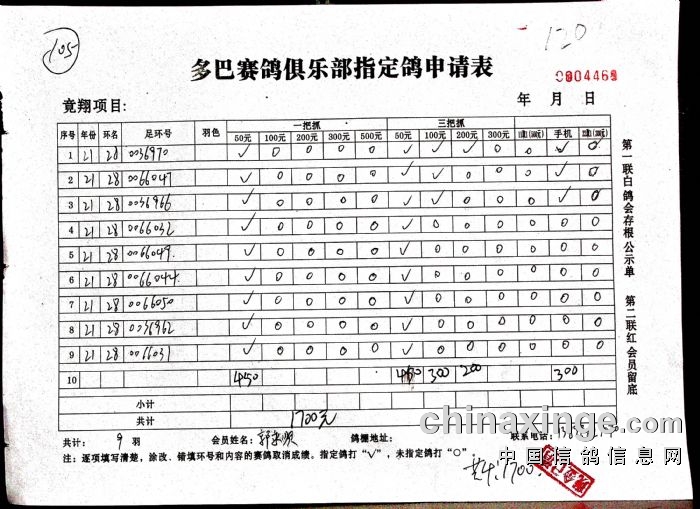 105
120
多巴赛鸽俱乐部指定鸽申请表
0004468
竟翔项目: 年 月 日
序号 年份 环名 足环号 羽色 一把抓 三把抓 手机
50元 100元 200元 300元 500元 50元 100元 200元 300元
1 21 28 0036970 ✓ 0 0 0 0 ✓ ✓ ✓ 0 0 ✓ 0
2 21 28 0066047 ✓ 0 0 0 0 ✓ ✓ 0 0 0 ✓ 0
3 21 28 0036966 ✓ 0 0 0 0 ✓ ✓ 0 0 0 ✓ 0
4 21 28 0066032 ✓ 0 0 0 0 ✓ 0 0 0 0 0 0
5 21 28 0066049 ✓ 0 0 0 0 ✓ 0 0 0 0 0 0
6 21 28 0066044 ✓ 0 0 0 0 ✓ 0 0 0 0 0 0
7 21 28 0066050 ✓ 0 0 0 0 ✓ 0 0 0 0 0 0
8 21 28 0036962 ✓ 0 0 0 0 ✓ 0 0 0 0 0 0
9 21 28 0066031 ✓ 0 0 0 0 ✓ 0 0 0 0 0 0
10 450 450 300 200 300
小计
共计 1700元
共计: 9 羽 会员姓名: 鸽棚地址: 联系电话:
注:逐项填写清楚,涂改、错填环号和内容的赛鸽取消成绩。指定鸽打“√”,未指定鸽打“○”。
共4:1700
第一联白鸽会存根公示单 第二联红会员留底
chinaxinge.com
中国信鸽信息网